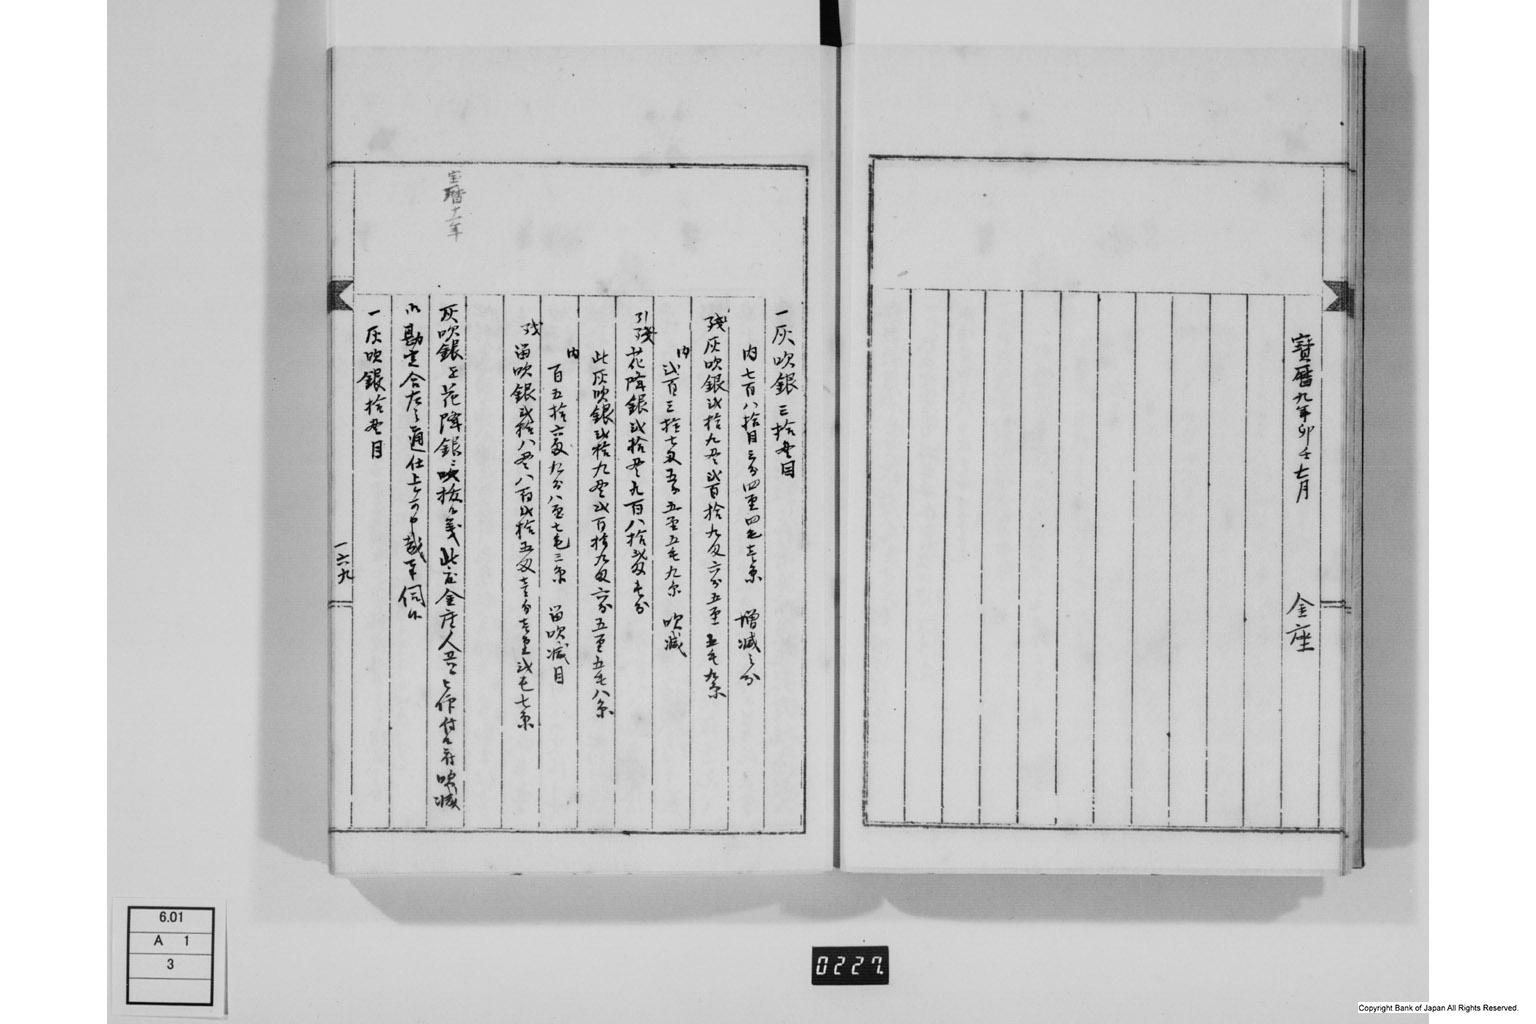 寶曆九年卯七月
金座
一灰吹銀三拾貫目
内七百八拾目三分四厘四毛壱糸 増減之分
残灰吹銀弐拾九貫弐百拾九匁六分五厘五毛九糸
内弐百三拾七匁五分五厘五毛九糸 吹減
引残花降銀弐拾貫九百八拾弐匁壱分
此灰吹銀弐拾九貫弐百拾九匁六分五厘五毛八糸
内百五拾六匁九分八厘七毛三糸 留吹減目
残留吹銀弐拾八貫八百弐拾五匁壱分壱厘弐毛七糸
宝暦十一年
灰吹銀を花降銀ニ吹抜候義此度金座人共江作付候吹減
御勘定合左之通仕上ケ可申哉奉伺候
一灰吹銀拾貫目
一六九
6.01
A 1
3
0227.
Copyright Bank of Japan All Rights Reserved.